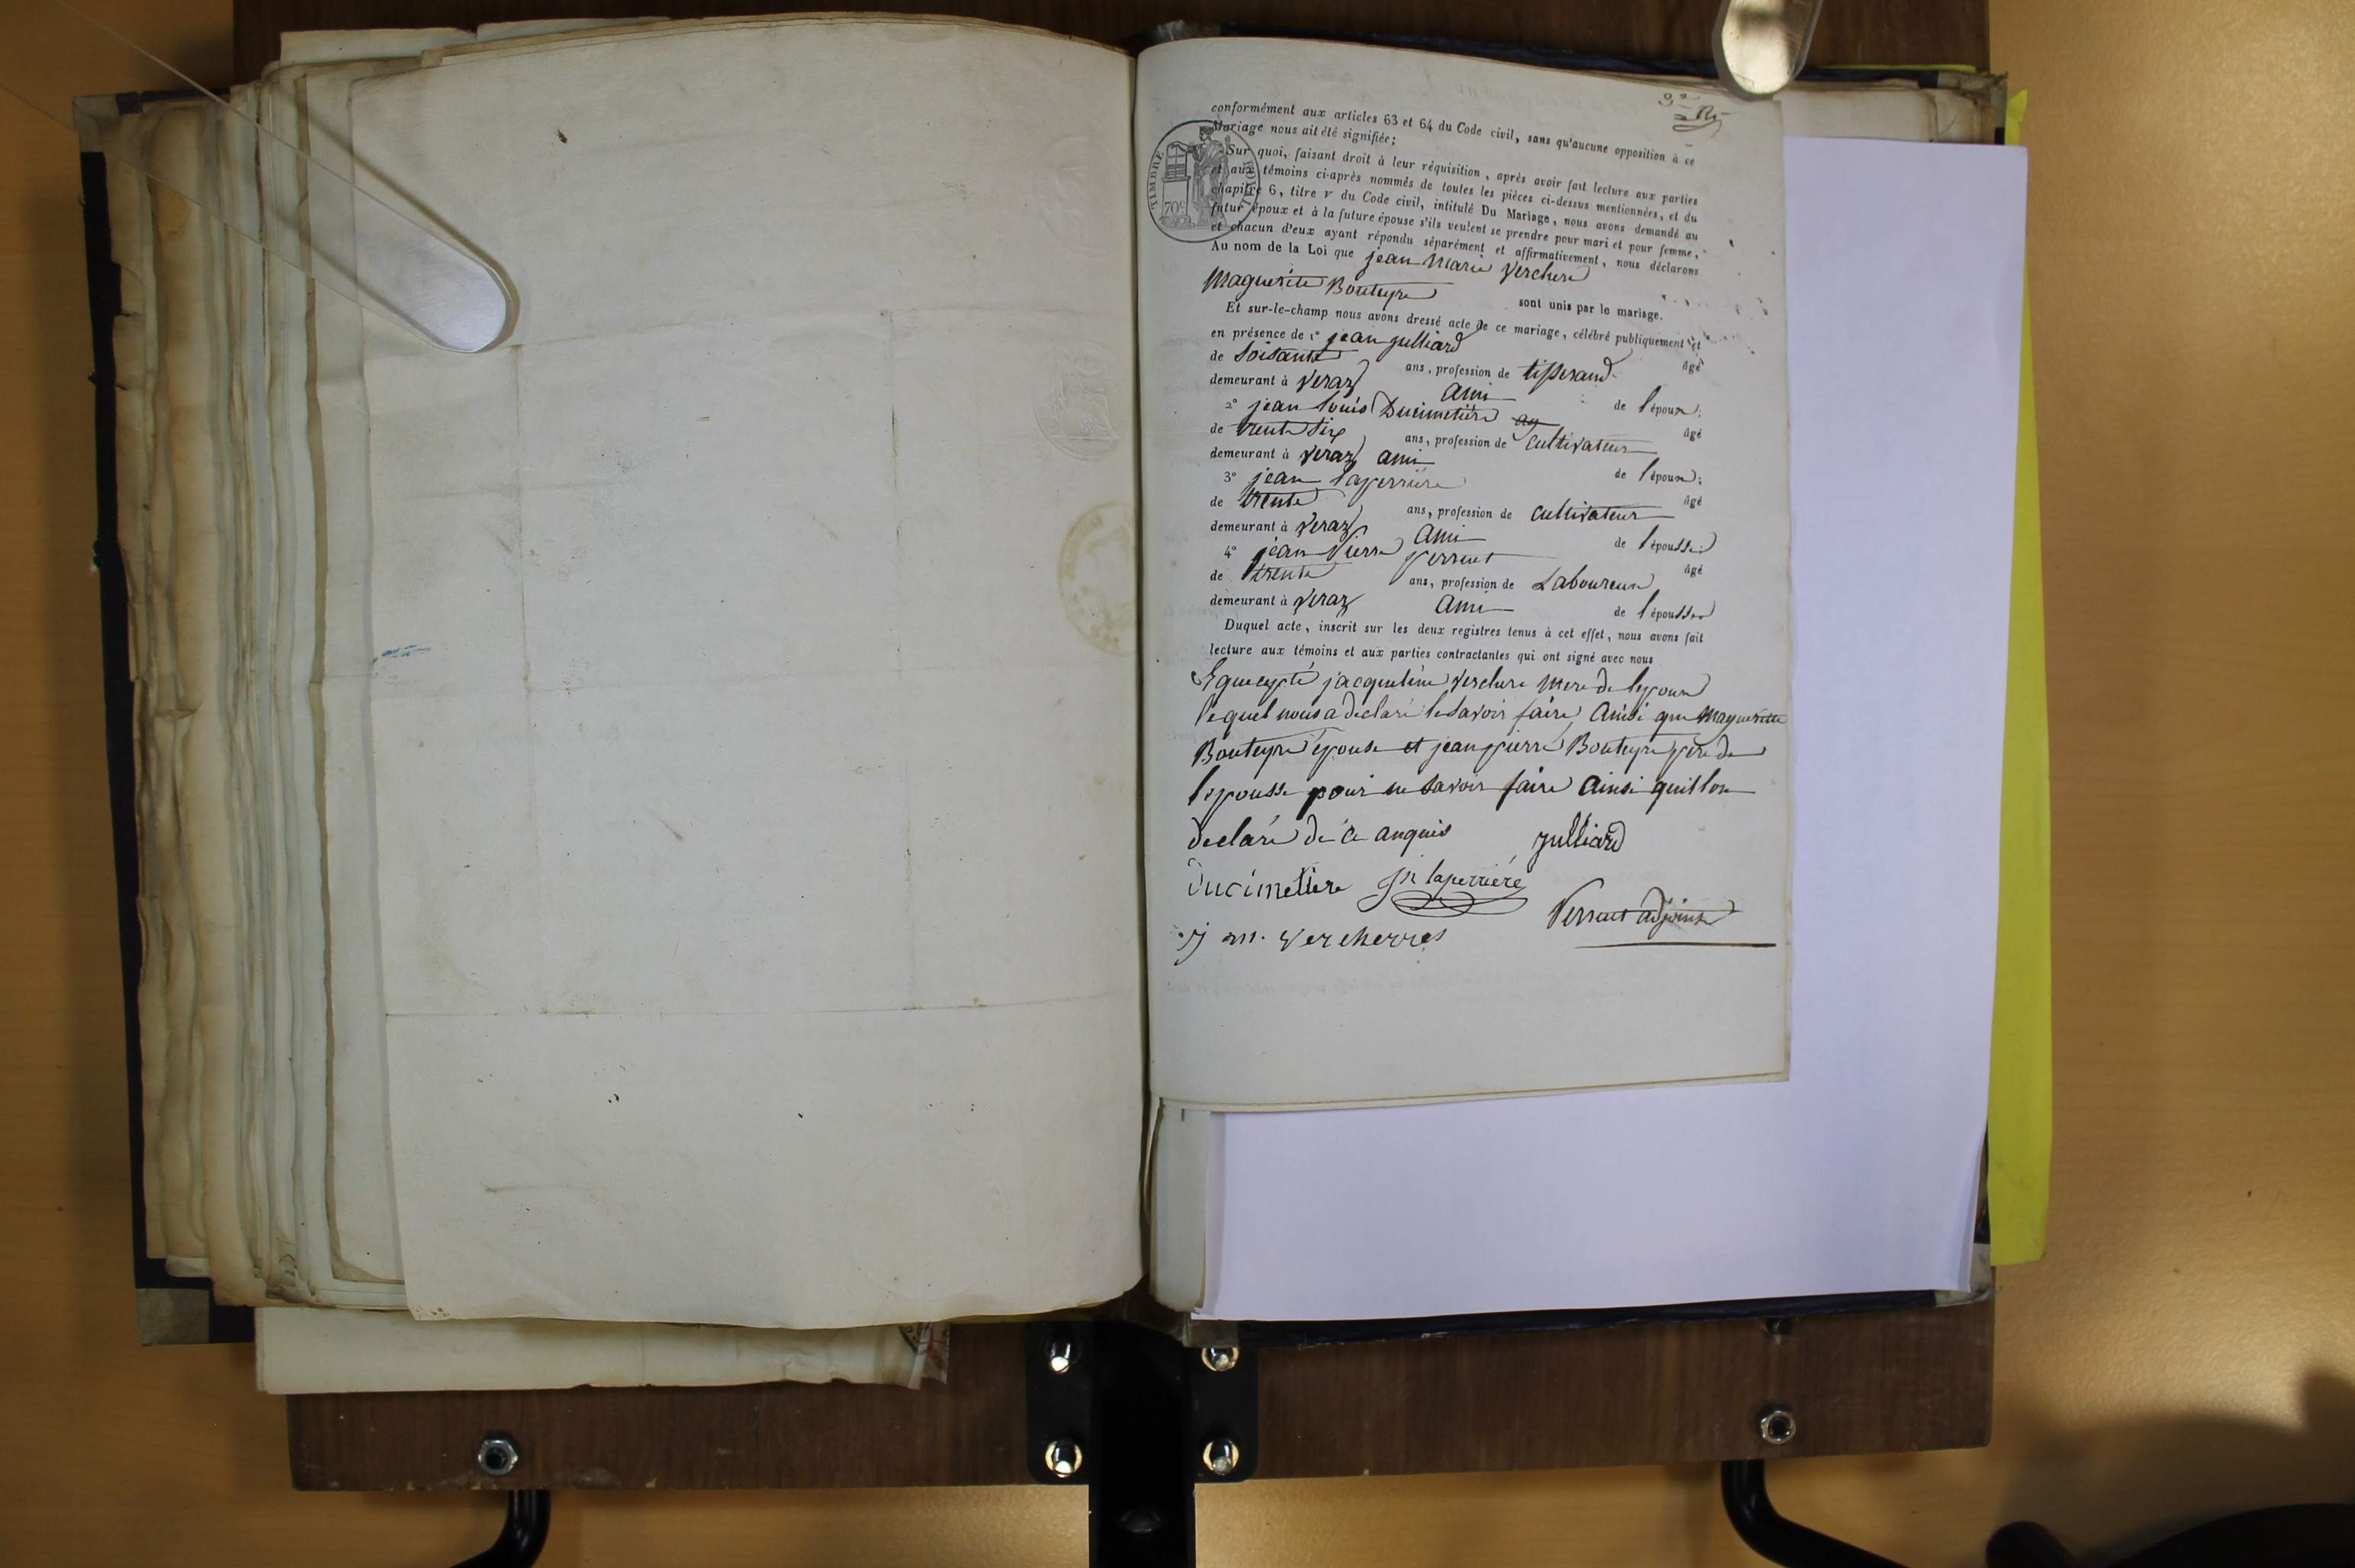 3e
conformément aux articles 63 et 64 du Code civil, sans qu'aucune opposition à ce
Mariage nous ait été signifiée;
Sur quoi, faisant droit à leur réquisition, après avoir fait lecture aux parties
et aux témoins ci-après nommés de toutes les pièces ci-dessus mentionnées, et du
chapitre 6, titre v du Code civil, intitulé Du Mariage, nous avons demandé au
futur époux et à la future épouse s'ils veulent se prendre pour mari et pour femme,
et chacun d'eux ayant répondu séparément et affirmativement, nous déclarons
Au nom de la Loi que jean Marie Verchere
Maguerite Bouteyre sont unis par le mariage.
Et sur-le-champ nous avons dressé acte de ce mariage, célébré publiquement et
en présence de 1° jean julliard âgé
de Soisante ans, profession de tisserand
demeurant à Veraz Ami de l'époux;
2° jean louis Ducimetière âgé
de trente six ans, profession de Cultivateur
demeurant à Veraz ami de l'époux;
3° jean laperriere âgé
de trente ans, profession de Cultivateur
demeurant à Veraz Ami de l'épousse;
4° jean Pierre Perreut âgé
de trente ans, profession de Laboureur
demeurant à Veraz Ami de l'épousse
Duquel acte, inscrit sur les deux registres tenus à cet effet, nous avons fait
lecture aux témoins et aux parties contractantes qui ont signé avec nous
jacqueline Verchere Mere de lepoux
lequel nous a declaré le savoir faire, Ainsi que Maguerite
Bouteyre épouse et jean pierre Bouteyre pere de
lepousse pour ne savoir faire Ainsi quil lon
declaré de ce anquis julliard
Ducimetiere Jn laperriére
Perreut adjoint
j m. Vercherres
TIMBRE ROYAL
70c